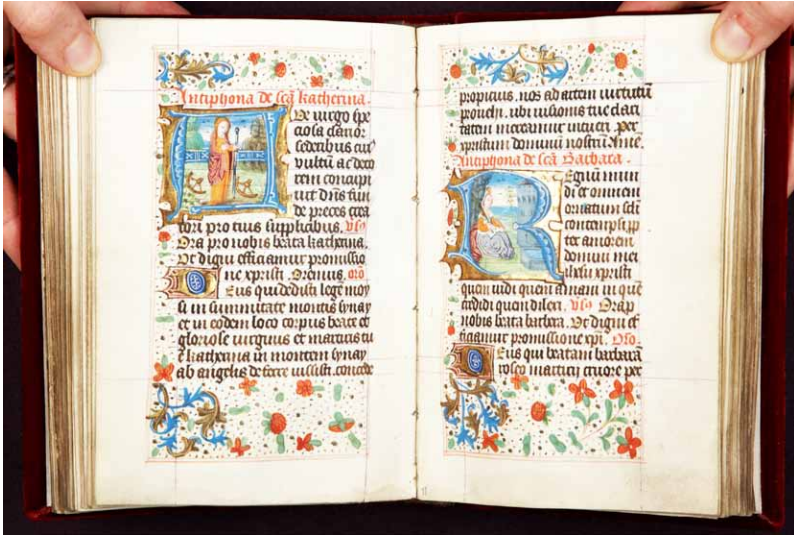 Antiphona de scā katherina.
Ve uirgo spe
ciosa clarior
sideribus cui'
uultū ac deco
rem concupi
uit dn̄s fun
de preces crea
tori pro tuis supplicibus. vs̄
Ora pro nobis beata katherina.
Vt digni efficiamur promissio
ne xpristi. Oremus. oro
Eus qui dedisti legē moy
si in summitate montis synay
et in eodem loco corpus beate et
gloriose uirginis et martiris tu
ē katherina in montem synay
ab angelis deferre iussisti. concede
propicius. nos ad arcem uirtutū
prouehi. ubi uisionis tue clari
tatem mereamur intueri. per
xpristum dominū nostrū Ame.
Antiphona de scā Barbara.
Egnū mun
di et omnem
ornatum scli
contempsi pp
ter amorem
domini mei
ihesu xpristi
quem uidi quem amaui in quē
credidi quem dilexi. vs̄ Ora p
nobis beata barbera. Vt digni ef
ficiamur promissione xpi. Oro.
Eus qui beatam barbarā
roseo martirii cruore per